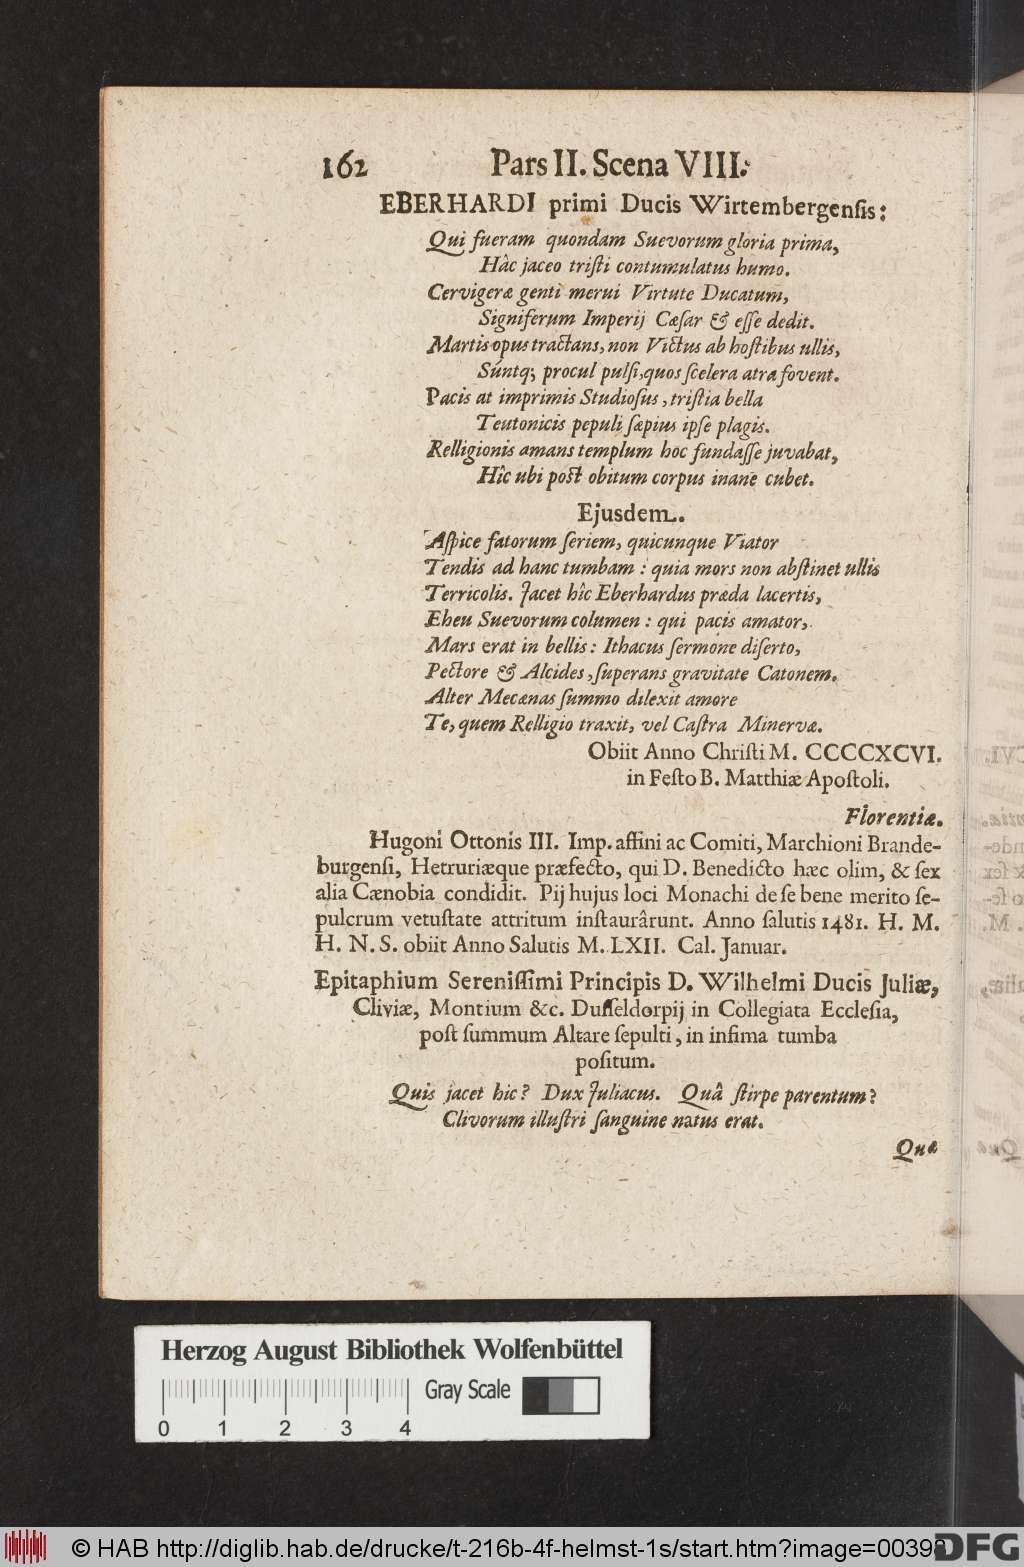 162 Pars II. Scena VIII.
EBERHARDI primi Ducis Wirtembergensis:
Qui fueram quondam Suevorum gloria prima,
Hâc jaceo tristi contumulatus humo.
Cervigeræ genti merui Virtute Ducatum,
Signiferum Imperij Cæsar & esse dedit.
Martis opus tractans, non Victus ab hostibus ullis,
Súntq; procul pulsi, quos scelera atra fovent.
Pacis at imprimis Studiosus, tristia bella
Teutonicis pepuli sæpius ipse plagis.
Relligionis amans templum hoc fundasse juvabat,
Hîc ubi post obitum corpus inane cubet.
Ejusdem.
Aspice fatorum seriem, quicunque Viator
Tendis ad hanc tumbam: quia mors non abstinet ullis
Terricolis. Jacet hîc Eberhardus præda lacertis,
Eheu Suevorum columen: qui pacis amator,
Mars erat in bellis: Ithacus sermone diserto,
Pectore & Alcides, superans gravitate Catonem.
Alter Mecænas summo dilexit amore
Te, quem Relligio traxit, vel Castra Minervæ.
Obiit Anno Christi M. CCCCXCVI.
in Festo B. Matthiæ Apostoli.
Florentiæ.
Hugoni Ottonis III. Imp. affini ac Comiti, Marchioni Brande-
burgensi, Hetruriæque præfecto, qui D. Benedicto hæc olim, & sex
alia Cænobia condidit. Pij hujus loci Monachi de se bene merito se-
pulcrum vetustate attritum instaurârunt. Anno salutis 1481. H. M.
H. N. S. obiit Anno Salutis M. LXII. Cal. Januar.
Epitaphium Serenissimi Principis D. Wilhelmi Ducis Juliæ,
Cliviæ, Montium &c. Dusseldorpij in Collegiata Ecclesia,
post summum Altare sepulti, in infima tumba
positum.
Quis jacet hic? Dux Juliacus. Quâ stirpe parentum?
Clivorum illustri sanguine natus erat.
Quæ
Herzog August Bibliothek Wolfenbüttel
Gray Scale
0 1 2 3 4
© HAB http://diglib.hab.de/drucke/t-216b-4f-helmst-1s/start.htm?image=00398
DFG